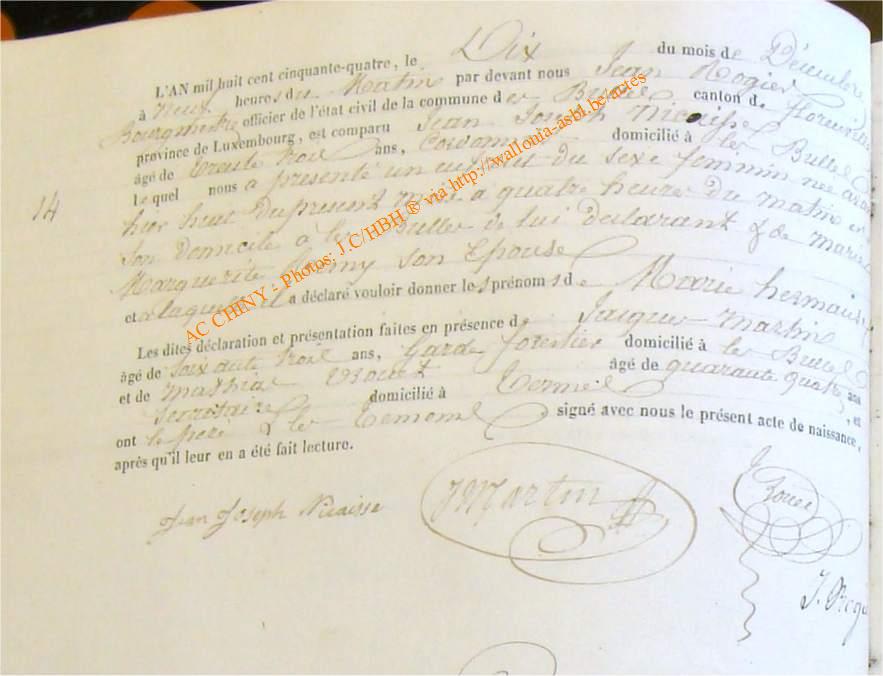 L'AN mil huit cent cinquante-quatre, le Dix du mois de Décembre
à neuf heures du Matin par devant nous Jean Rogier
Bourgmestre officier de l'état civil de la commune des Bulles canton de florenville
province de Luxembourg, est comparu Jean Joseph Nicaisse
âgé de trente trois ans, Cordonnier domicilié à les Bulles
lequel nous a présenté un enfant du sexe feminin née avant
hier huit du present mois a quatre heures du matin en
son domicile à les Bulles de lui declarant & de marie
Marguerite son Epouse
et a laquelle il a déclaré vouloir donner les prénoms de Marie
Les dites déclaration et présentation faites en présence de Jacques Martin
âgé de soixante trois ans, Garde forestier domicilié à les Bulles
et de âgé de quarante quatre ans
Secretaire domicilié à Termes , et
ont le pere & les temoins signé avec nous le présent acte de naissance,
après qu'il leur en a été fait lecture.
14
Jean Joseph Nicaisse
J Martin
AC CHINY - Photos: J.C/HBH ® via http://wallonia-asbl.be/actes